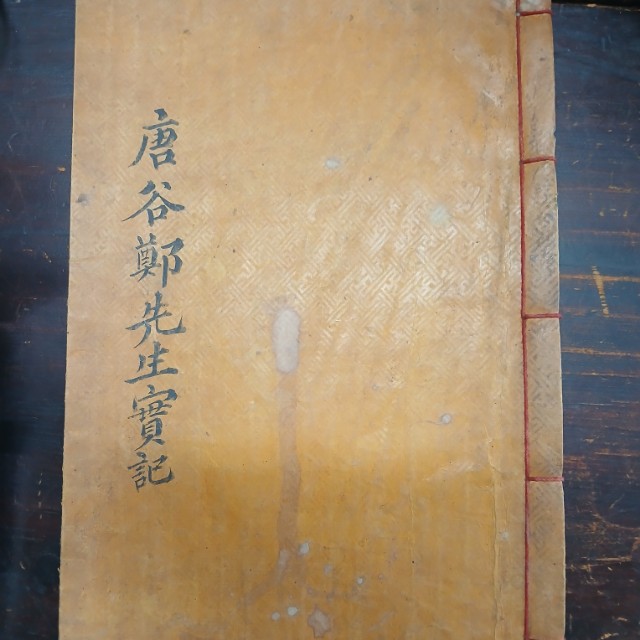 唐谷鄭先生實記